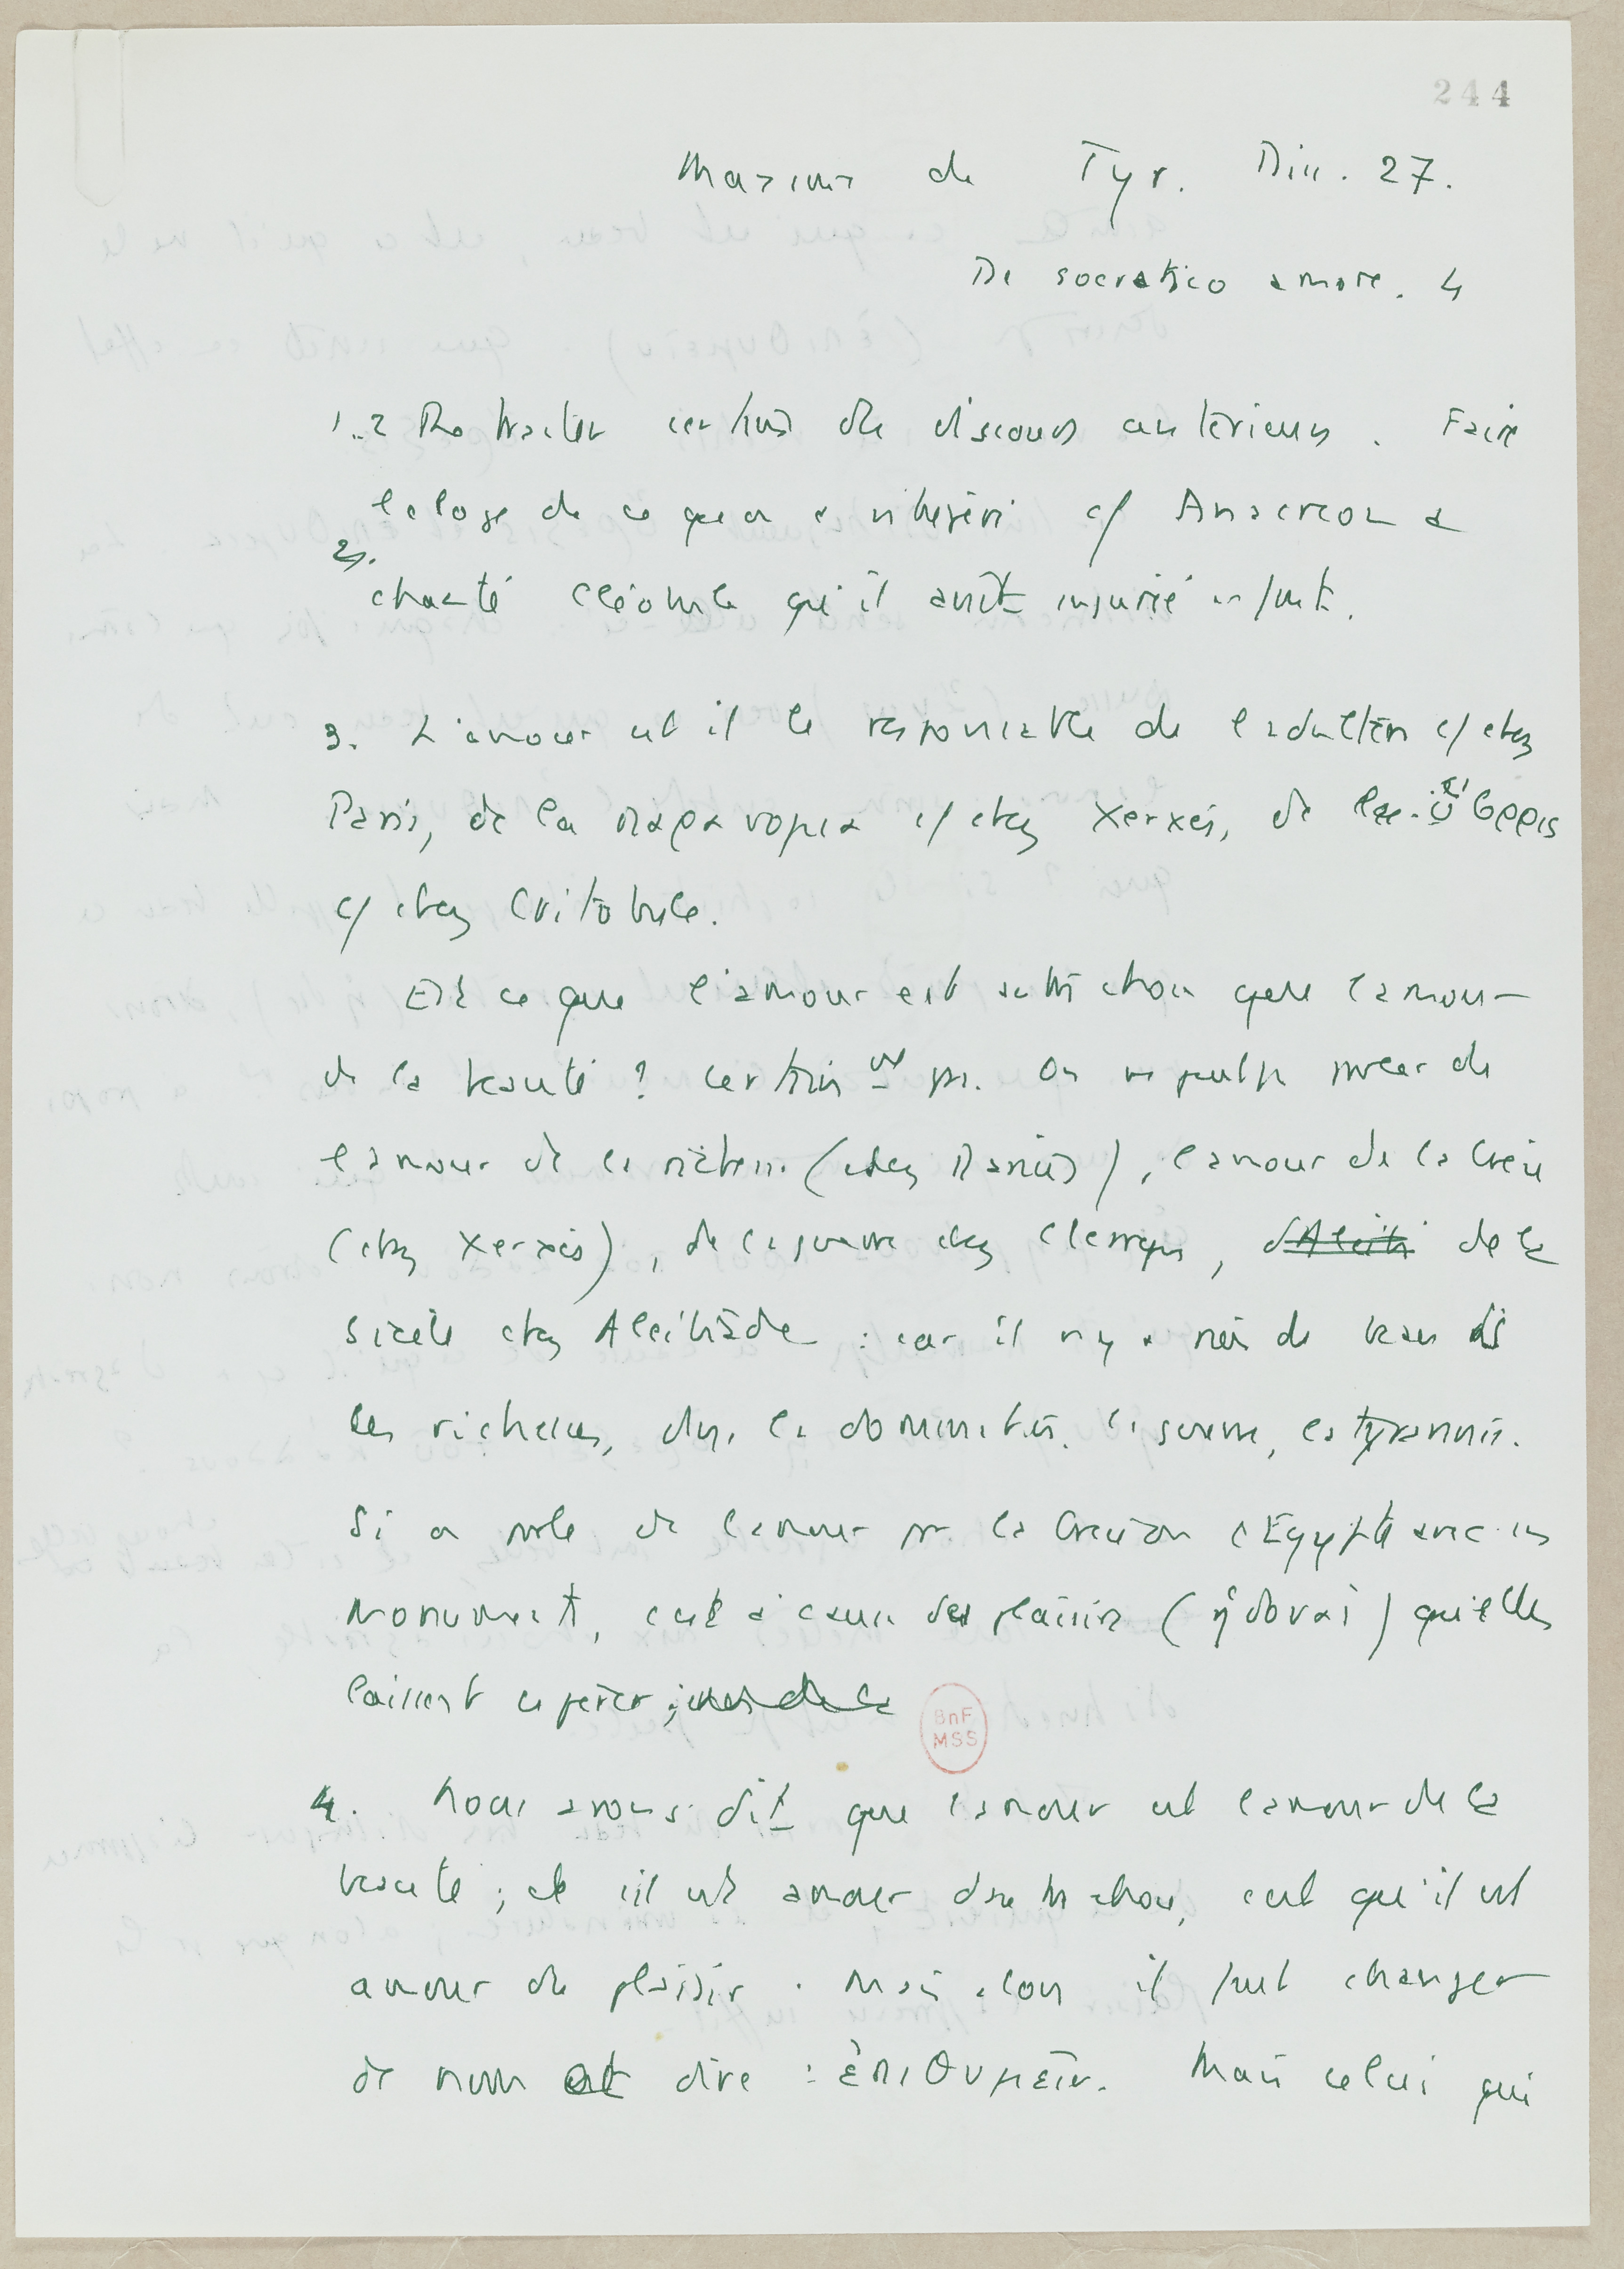 244
Maxime de Tyr. Diss. 27.
De socratico amore. 4
1.2 Rétracter certains des discours antérieurs. Faire
l'eloge de ce qu'on a vitupéré c/ Anacréon a
2.
chanté Cléobule qu'il avait injurié enfant.
3. L'amour est il le responsable de l'adultère c/ chez
Paris, de la παρανομια c/ chez Xerxès, de l' ὕβρις
c/ chez Critobule.
Est ce que l'amour est autre chose que l'amour
de la beauté ? Certainemt pas. On ne peut pas parler de
l'amour de la richesse (chez Darius), l'amour de la Grèce
(chez Xerxès), de la guerre chez Cléarque, d'Alcib de la
Sicile chez Alcibiade : car il n'y a rien de beau ds
les richesses, dans la domination, la guerre, la tyrannie.
Si on parle de l'amour pr la Grèce ou l'Egypte avec ses
monuments, c'est à cause des plaisirs (ἡδοναὶ) qu'elles
laissent espérer ;
BnF
MSS
4. Nous avons dit que l'amour est l'amour de la
beauté ; et s'il est amour d'autre chose, c'est qu'il est
amour de plaisir. Mais alors il faut changer
de nom et dire : ἐπιθυμεῖν. Mais celui qui